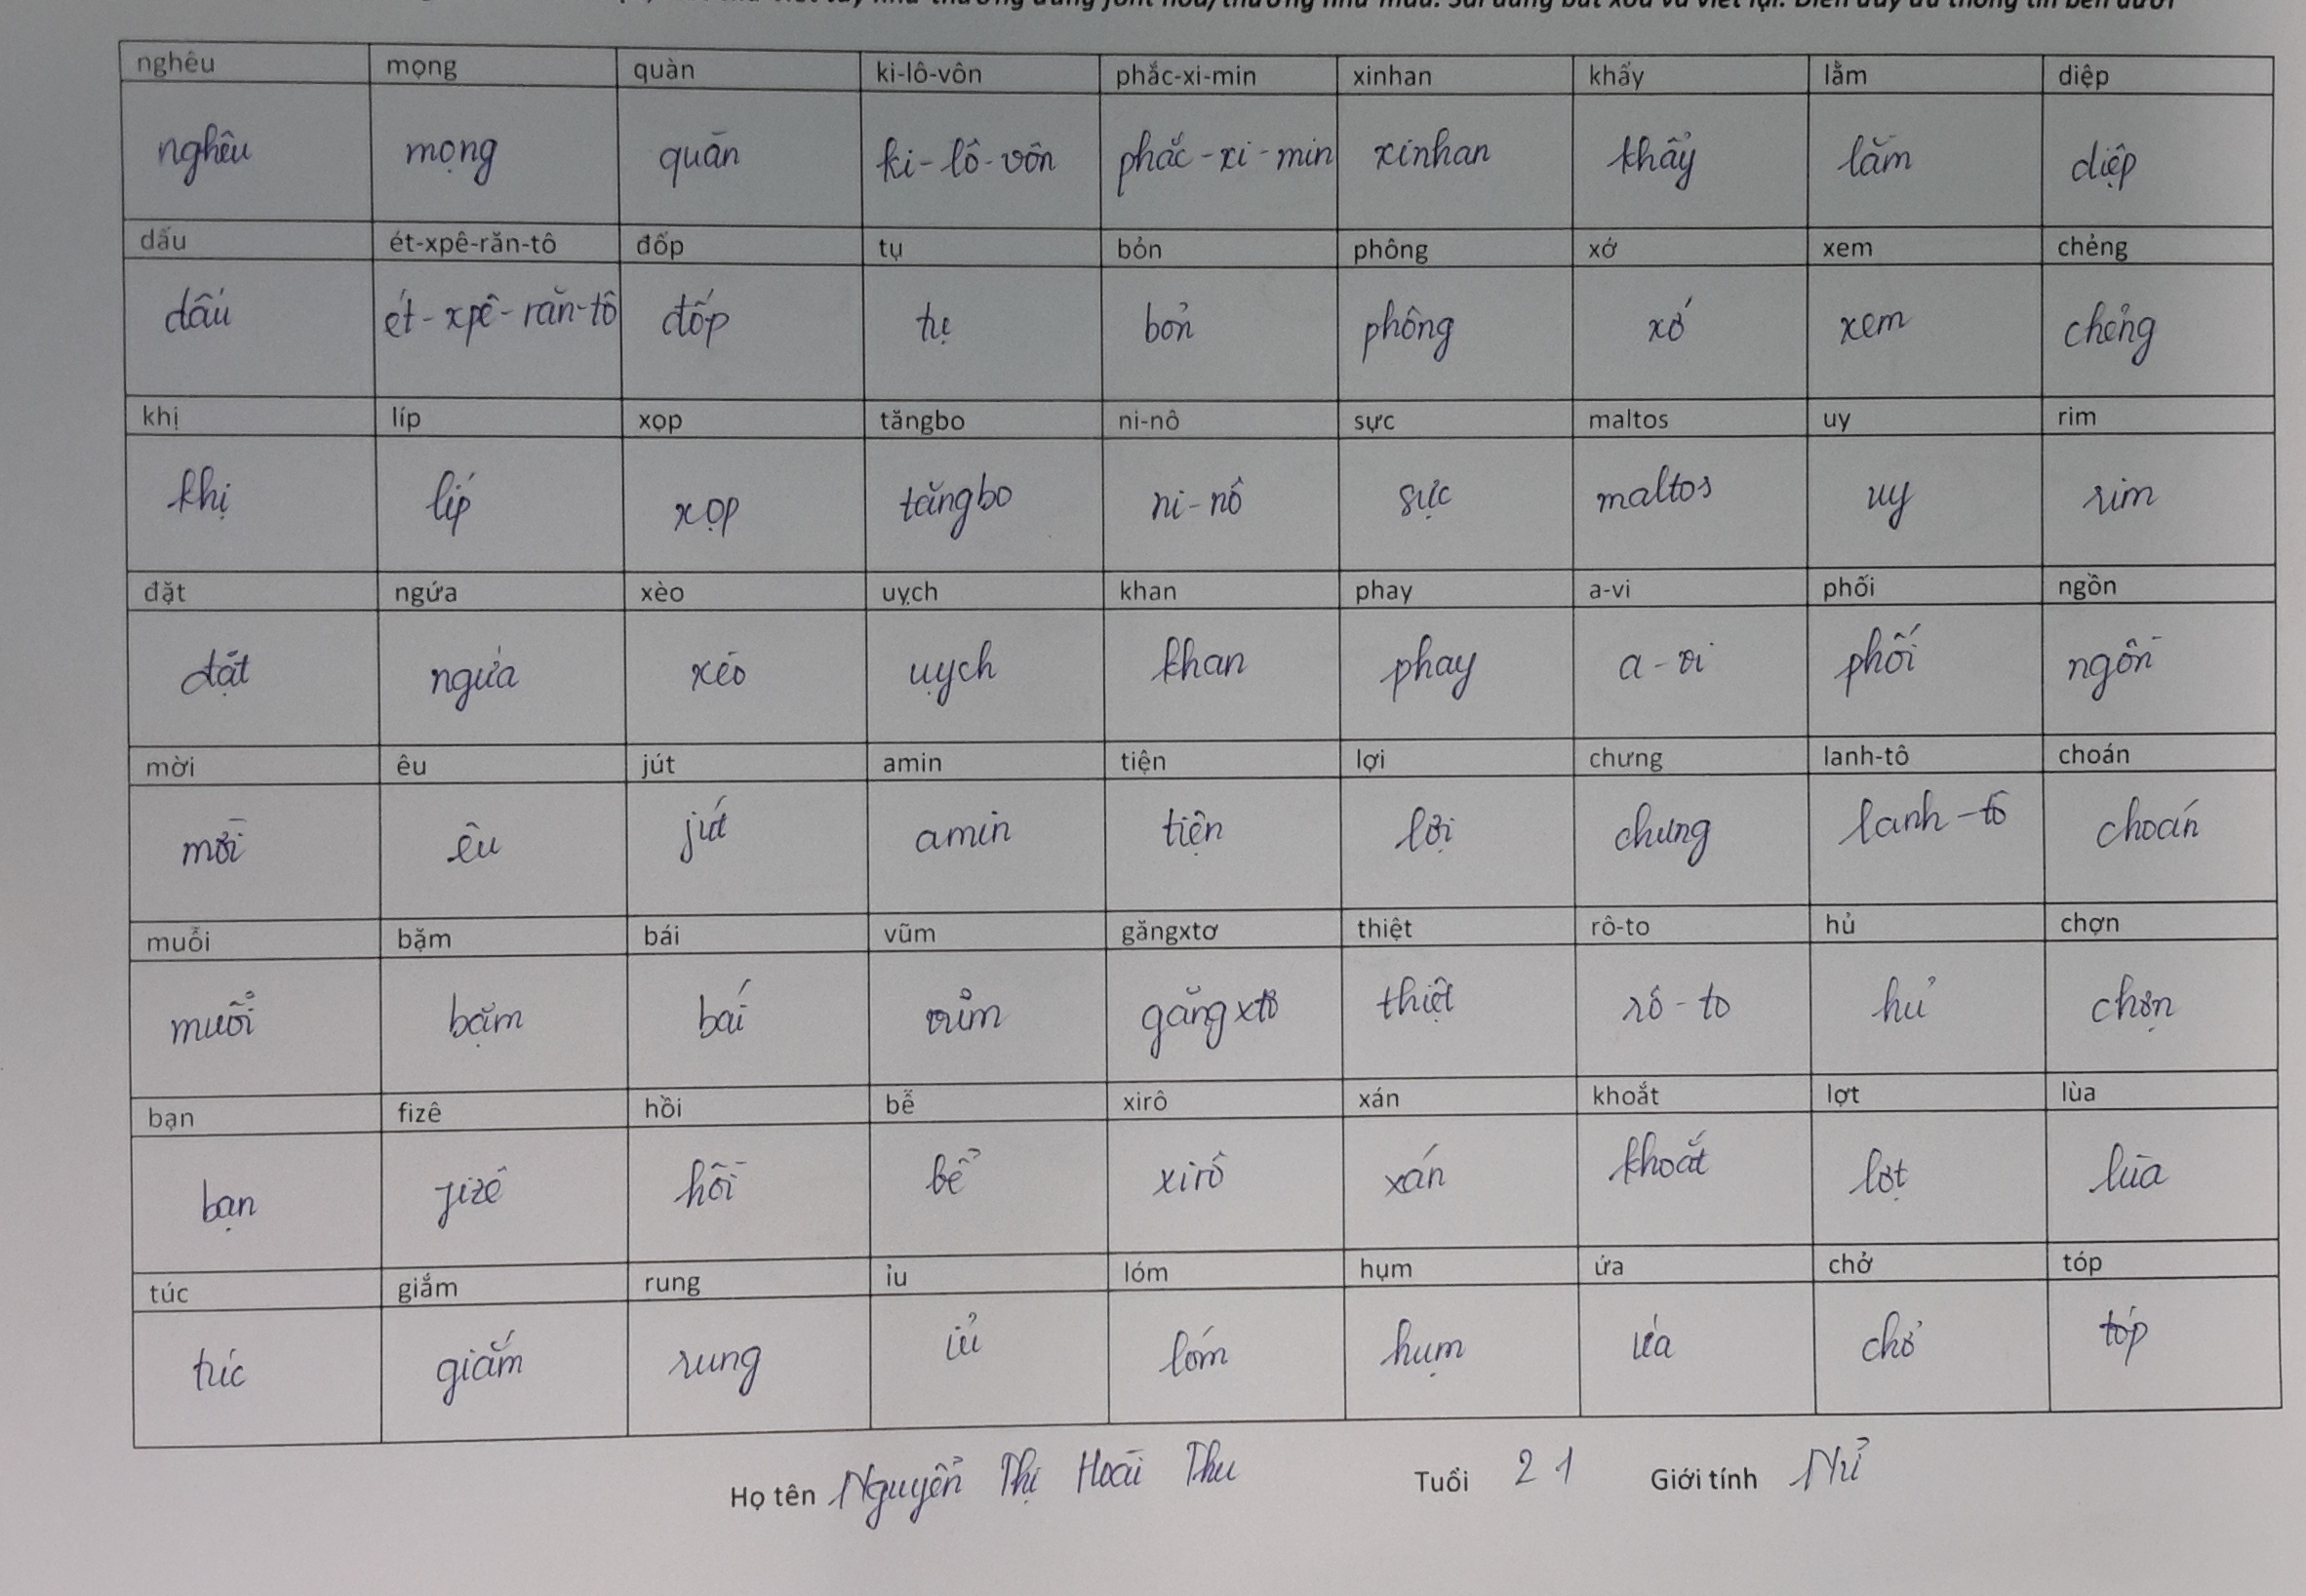 nghêu mọng quàn ki-lô-vôn phắc-xi-min xinhan khẩy lằm diệp
nghêu mọng quàn ki-lô-vôn phắc-xi-min xinhan khẩy lằm diệp
dấu ét-xpê-răn-tô đốp tụ bỏn phông xớ xem chẻng
dấu ét-xpê-răn-tô đốp tụ bỏn phông xớ xem chẻng
khị líp xọp tăngbo ni-nô sực maltos uy rim
khị líp xọp tăngbo ni-nô sực maltos uy rim
đặt ngứa xèo uỵch khan phay a-vi phối ngồn
đặt ngứa xèo uỵch khan phay a-vi phối ngồn
mời êu jút amin tiện lợi chưng lanh-tô choán
mời êu jút amin tiện lợi chưng lanh-tô choán
muỗi bặm bái vũm găngxtơ thiệt rô-to hủ chợn
muỗi bặm bái vũm găngxtơ thiệt rô-to hủ chợn
bạn fizê hồi bễ xirô xán khoắt lợt lùa
bạn fizê hồi bễ xirô xán khoắt lợt lùa
túc giắm rung ỉu lóm hụm ứa chở tóp
túc giắm rung ỉu lóm hụm ứa chở tóp
Họ tên Nguyễn Thị Hoài Thu Tuổi 21 Giới tính Nữ